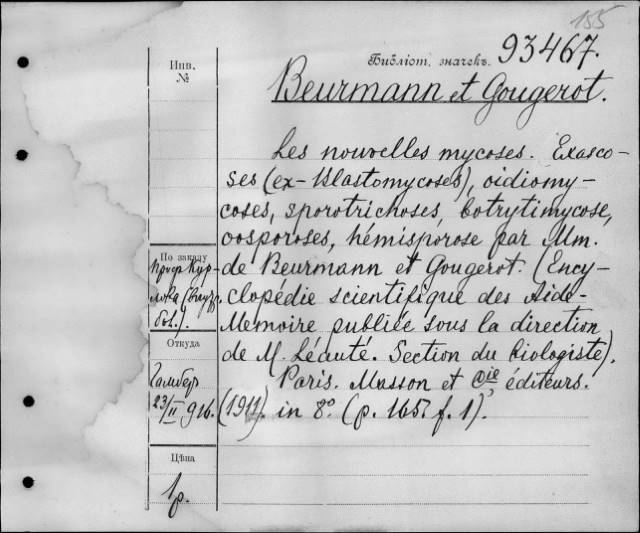 155
Инв.
№
Библіот. значекъ. 93467.
Beurmann et Gougerot.
Les nouvelles mycoses. Exasco-
ses (ex-Blastomycoses), oidiomy-
coses, sporotrichoses, botrytimycose,
oosporoses, hémisporose par Mm.
de Beurmann et Gougerot. (Ency-
clopédie scientifique des Aide-
Memoire publiée sous la direction
de M. Léauté. Section du biologiste).
Paris. Masson et Cie, éditeurs.
(1911). in 8º. (p. 165. f. 1).
По заказу
проф Кур-
лова
бол.).
Откуда
23/II 916.
Цѣна
1 р.